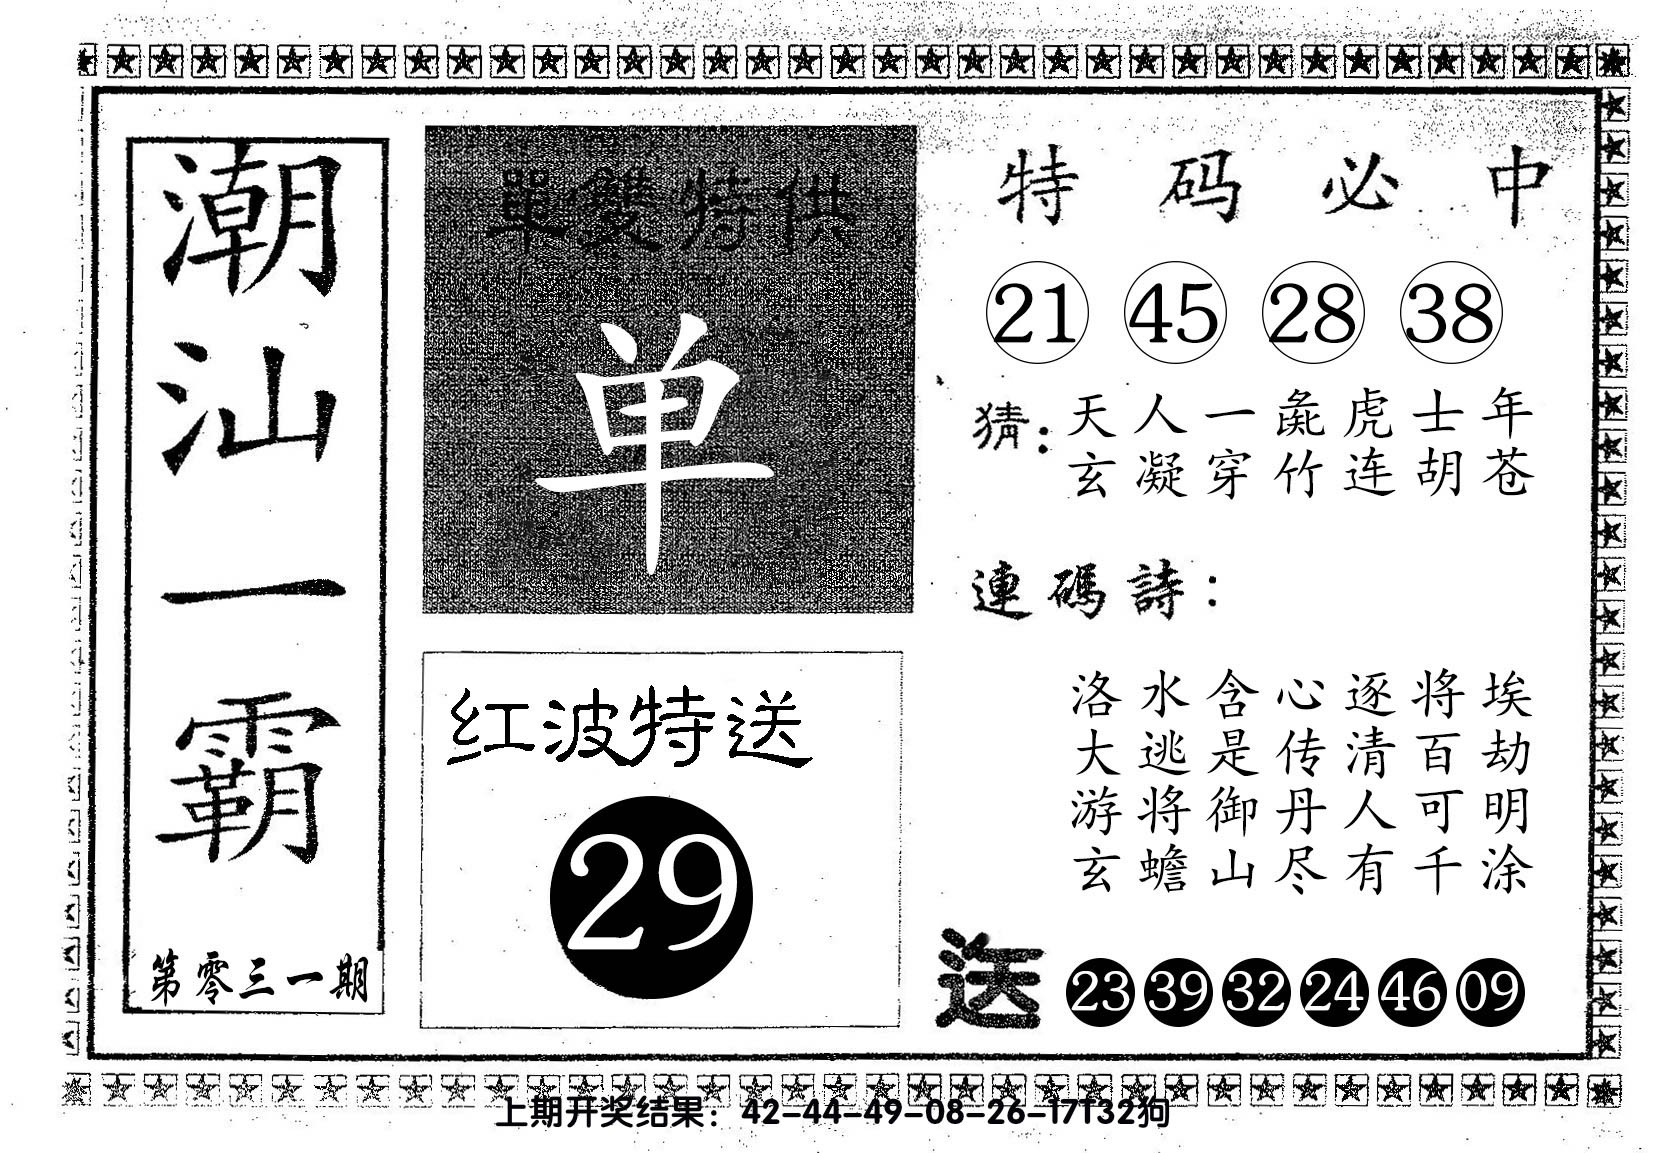 潮汕一霸
第零三一期
單雙特供
单
红波特送
29
特码必中
21 45 28 38
猜：天人一彘虎士年
玄凝穿竹连胡苍
連碼詩：
洛水含心逐将埃
大逃是传清百劫
游将御丹人可明
玄蟾山尽有千涂
送 23 39 32 24 46 09
上期开奖结果：42-44-49-08-26-17T32狗